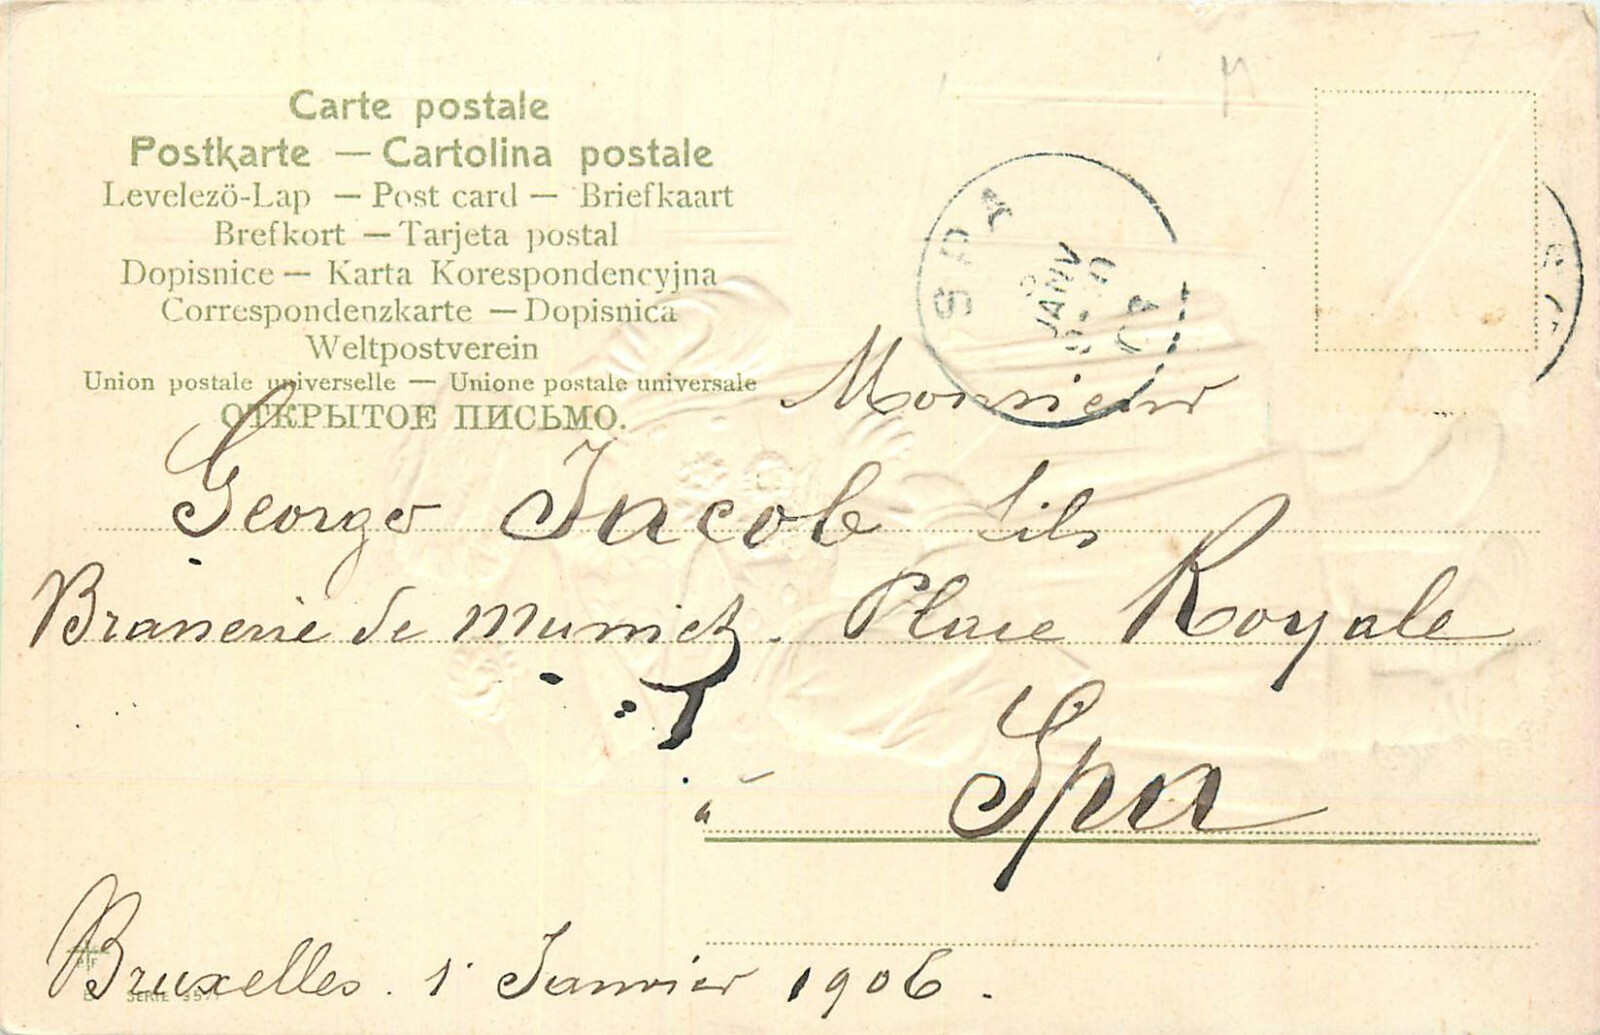 Carte postale
Postkarte — Cartolina postale
Levelező-Lap — Post card — Briefkaart
Brefkort — Tarjeta postal
Dopisnice — Karta Korespondencyjna
Correspondenzkarte — Dopisnica
Weltpostverein
Union postale universelle — Unione postale universale
ОТКРЫТОЕ ПИСЬМО.
SPA
JANV
Monsieur
George Jacob fils
Brasserie de Munich. Place Royale
à Spa
Bruxelles. 1 Janvier 1906.
PF
SERIE